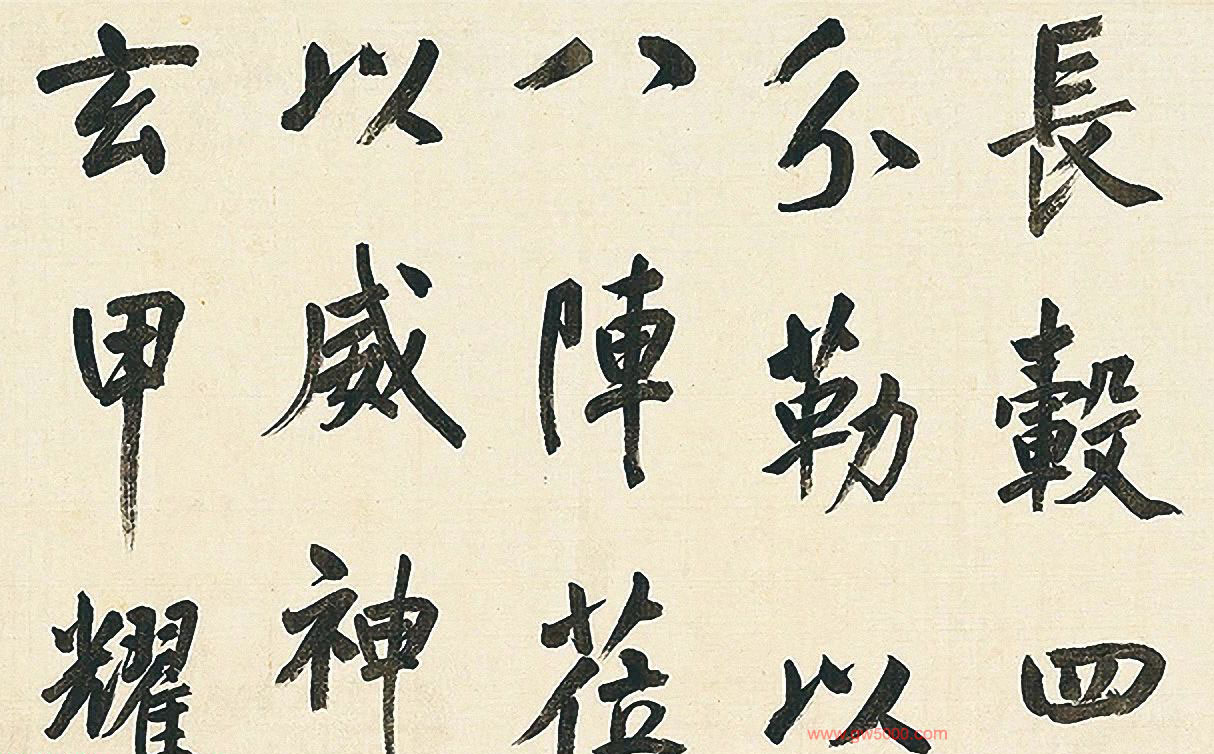 長轂四
分勒以
八陣蒞
以威神
玄甲耀
www.gw5000.com